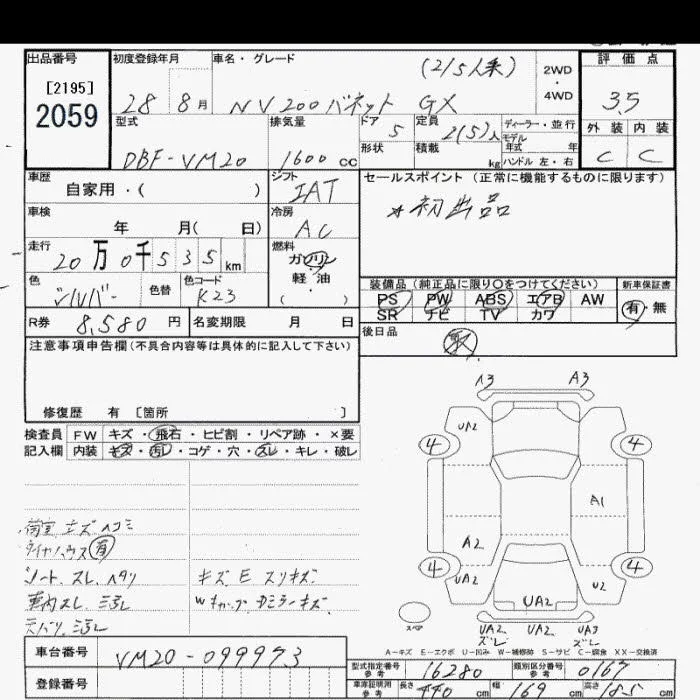 出品番号 初度登録年月 車名・グレード (2/5人乗) 2WD・4WD 評価点
[2195]
2059 28 8月 NV200バネット GX 3.5
型式 排気量 ドア 5 定員 2(5)人 ディーラー・並行 外装 内装
DBF-VM20 1600cc 形状 積載 kg モデル年式 年 ハンドル 左・右 C C
車歴 自家用・( ) シフト IAT セールスポイント (正常に機能するものに限ります)
車検 年 月( 日) 冷房 AC ☆初出品
走行 20万0千535km 燃料 ガソリン 軽・油 ・( )
色 シルバー 色替 色コード K23
装備品 (純正品に限り○をつけてください) 新車保証書
PS PW ABS エアB AW 有・無
SR ナビ TV カワ
R券 8,580円 名変期限 月 日 後日品
注意事項申告欄(不具合内容等は具体的に記入して下さい)
修復歴 有 [箇所 ]
検査員 FW キズ・飛石・ヒビ割・リペア跡・×要
記入欄 内装 キズ・汚レ・コゲ・穴・スレ・キレ・破レ
A3 A3
UA2
4 4
A1
A2
4 4
UA2 UA2 U2
UA2 UA2 UA3
ズレ ズレ
スペア
荷室 キズ ヘコミ
タイヤハウス 有
シート スレ、ヘタリ キズ E スリキズ
車内スレ、汚レ
天バリ、汚レ
A-キズ E-エクボ U-凹み W-補修跡 S-サビ C-腐食 XX-交換済
車台番号 VM20-099973
登録番号
型式指定番号 参考 16280 類別区分番号 参考 0167
車庫証明用 参考 長さ 440cm 幅 169cm 高さ 185cm